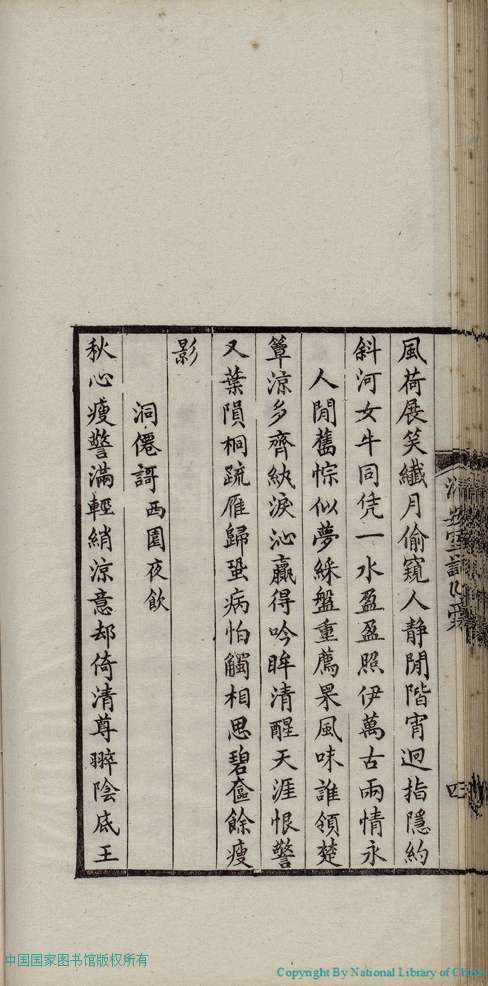 風荷展笑纖月偷窺人静閒階宵迥指隱約
斜河女牛同凭一水盈盈照伊萬古兩情永
人閒舊悰似夢綵盤重薦果風味誰領楚
簟涼多齊紈淚沁贏得吟眸清醒天涯恨警
又葉隕桐疏雁歸蛩病怕觸相思碧奩餘瘦
影
洞僊謌 西園夜飲
秋心瘦警滿輕綃涼意却倚清尊翠陰底王
四
中国国家图书馆版权所有
Copyright By National Library of China